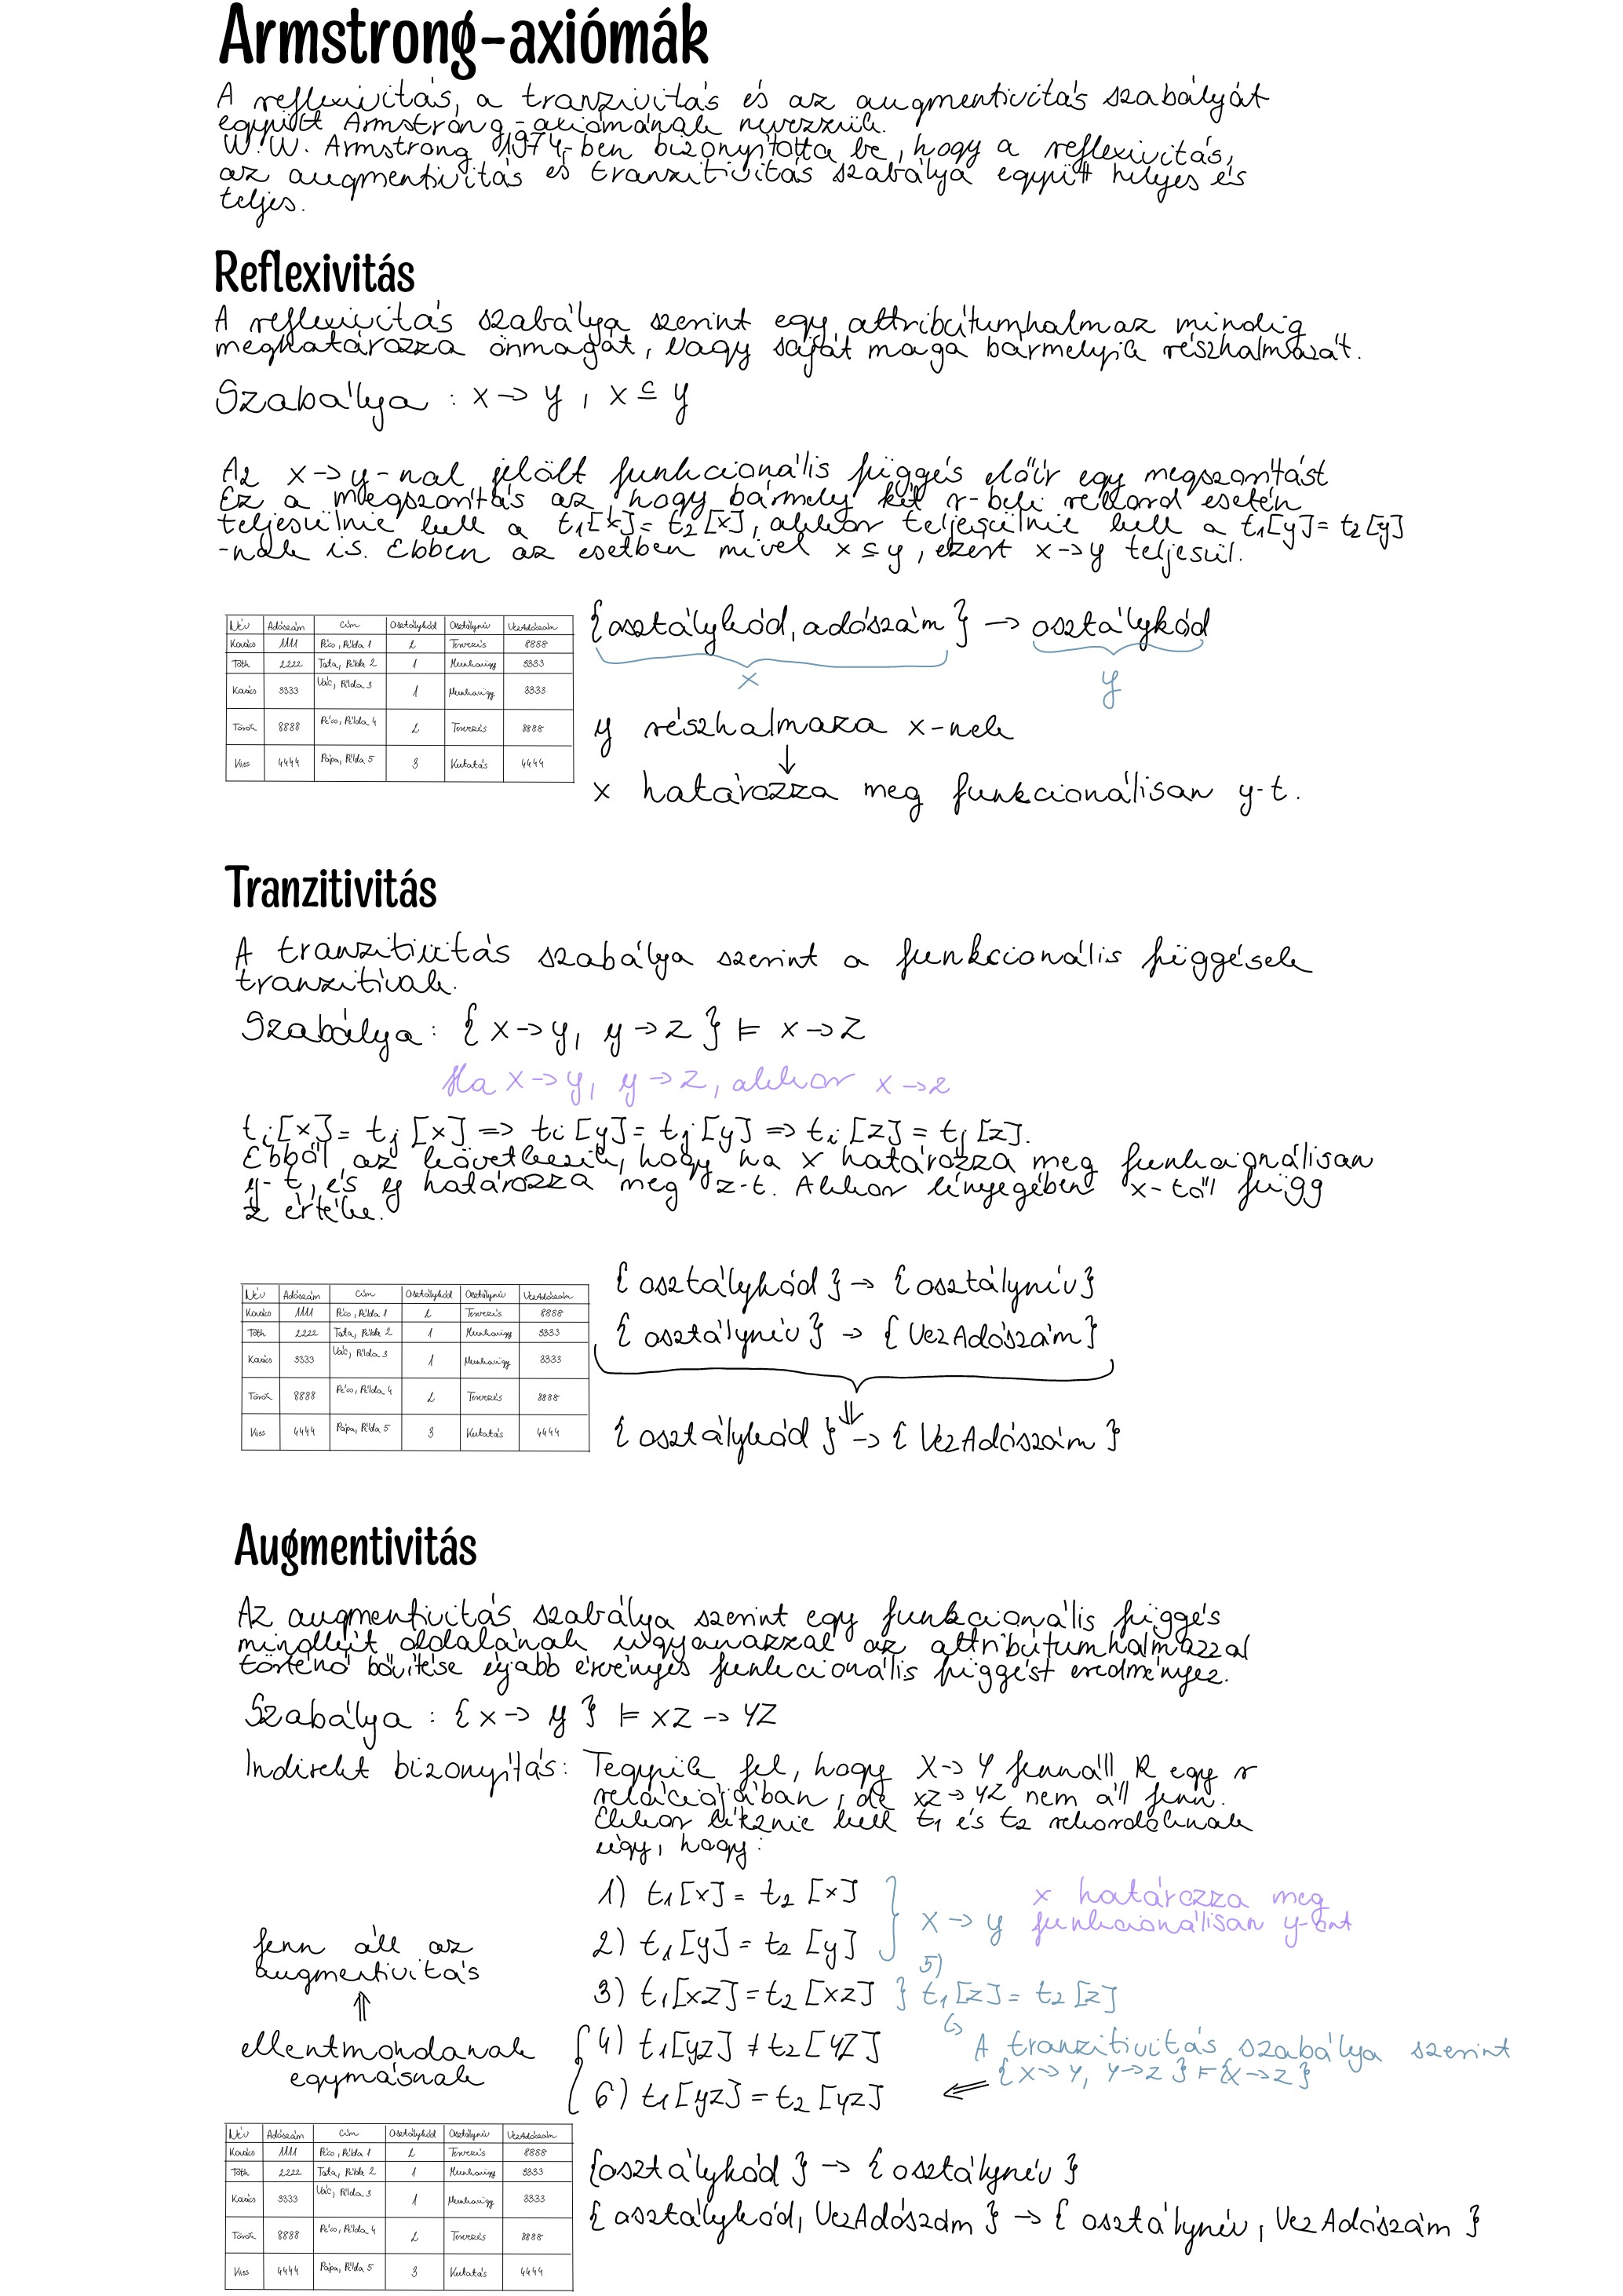 Armstrong-axiómák
A reflexivitás, a tranzivitás és az augmentivitás szabályát
együtt Armstrong-axiómának nevezzük.
W.W. Armstrong 1974-ben bizonyította be, hogy a reflexivitás,
az augmentivitás és tranzitivitás szabálya együtt helyes és
teljes.
Reflexivitás
A reflexivitás szabálya szerint egy attribútumhalmaz mindig
meghatározza önmagát, vagy saját maga bármelyik részhalmazát.
Szabálya : x → y , x ⊆ y
Az x→y-nal jelölt funkcionális függés előír egy megszorítást
Ez a megszorítás az, hogy bármely két r-beli rekord esetén
teljesülnie kell a t₁[x]= t₂[x], akkor teljesülnie kell a t₁[y]= t₂[y]
-nak is. Ebben az esetben mivel x ⊆ y, ezért x→y teljesül.
Név Adószám Cím Osztálykód Osztálynév VezAdószám
Kovács 1111 Pécs, Példa 1 2 Tervezés 8888
Tóth 2222 Tata, Példa 2 1 Munkaügy 3333
Kovács 3333 Vác, Példa 3 1 Munkaügy 3333
Török 8888 Pécs, Példa 4 2 Tervezés 8888
Kiss 4444 Pápa, Példa 5 3 Kutatás 4444
{osztálykód, adószám} → osztálykód
x y
y részhalmaza x-nek
↓
x határozza meg funkcionálisan y-t.
Tranzitivitás
A tranzitivitás szabálya szerint a funkcionális függések
tranzitívak.
Szabálya: {x→y, y→z} ⊨ x→z
Ha x→y, y→z, akkor x→z
tᵢ[x]= tⱼ[x] ⇒ tᵢ[y]= tⱼ[y] ⇒ tᵢ[z] = tⱼ[z].
Ebből az következik, hogy ha x határozza meg funkcionálisan
y-t, és y határozza meg z-t. Akkor lényegében x-től függ
z értéke.
Név Adószám Cím Osztálykód Osztálynév VezAdószám
Kovács 1111 Pécs, Példa 1 2 Tervezés 8888
Tóth 2222 Tata, Példa 2 1 Munkaügy 3333
Kovács 3333 Vác, Példa 3 1 Munkaügy 3333
Török 8888 Pécs, Példa 4 2 Tervezés 8888
Kiss 4444 Pápa, Példa 5 3 Kutatás 4444
{osztálykód} → {osztálynév}
{osztálynév} → {VezAdószám}
⇓
{osztálykód} → {VezAdószám}
Augmentivitás
Az augmentivitás szabálya szerint egy funkcionális függés
mindkét oldalának ugyanazzal az attribútumhalmazzal
történő bővítése újabb érvényes funkcionális függést eredményez.
Szabálya : {x→ y} ⊨ xz → yz
Indirekt bizonyítás: Tegyük fel, hogy X→Y fennáll R egy r
relációjában, de xz→yz nem áll fenn.
Ekkor létznie kell t₁ és t₂ rekordoknak
úgy, hogy:
1) t₁[x]= t₂[x]
2) t₁[y]= t₂[y]
x → y
x határozza meg
funkcionálisan y-ont
3) t₁[xz]=t₂[xz] } 5) t₁[z]= t₂[z]
4) t₁[yz] ≠ t₂[yz]
↳ A tranzitivitás szabálya szerint
{x→y, y→z} ⊨ {x→z}
6) t₁[yz] = t₂[yz] ⇐
fenn áll az
augmentivitás
⇑
ellentmondanak
egymásnak
Név Adószám Cím Osztálykód Osztálynév VezAdószám
Kovács 1111 Pécs, Példa 1 2 Tervezés 8888
Tóth 2222 Tata, Példa 2 1 Munkaügy 3333
Kovács 3333 Vác, Példa 3 1 Munkaügy 3333
Török 8888 Pécs, Példa 4 2 Tervezés 8888
Kiss 4444 Pápa, Példa 5 3 Kutatás 4444
{osztálykód} → {osztálynév}
{osztálykód, VezAdószám} → {osztálynév, VezAdószám}